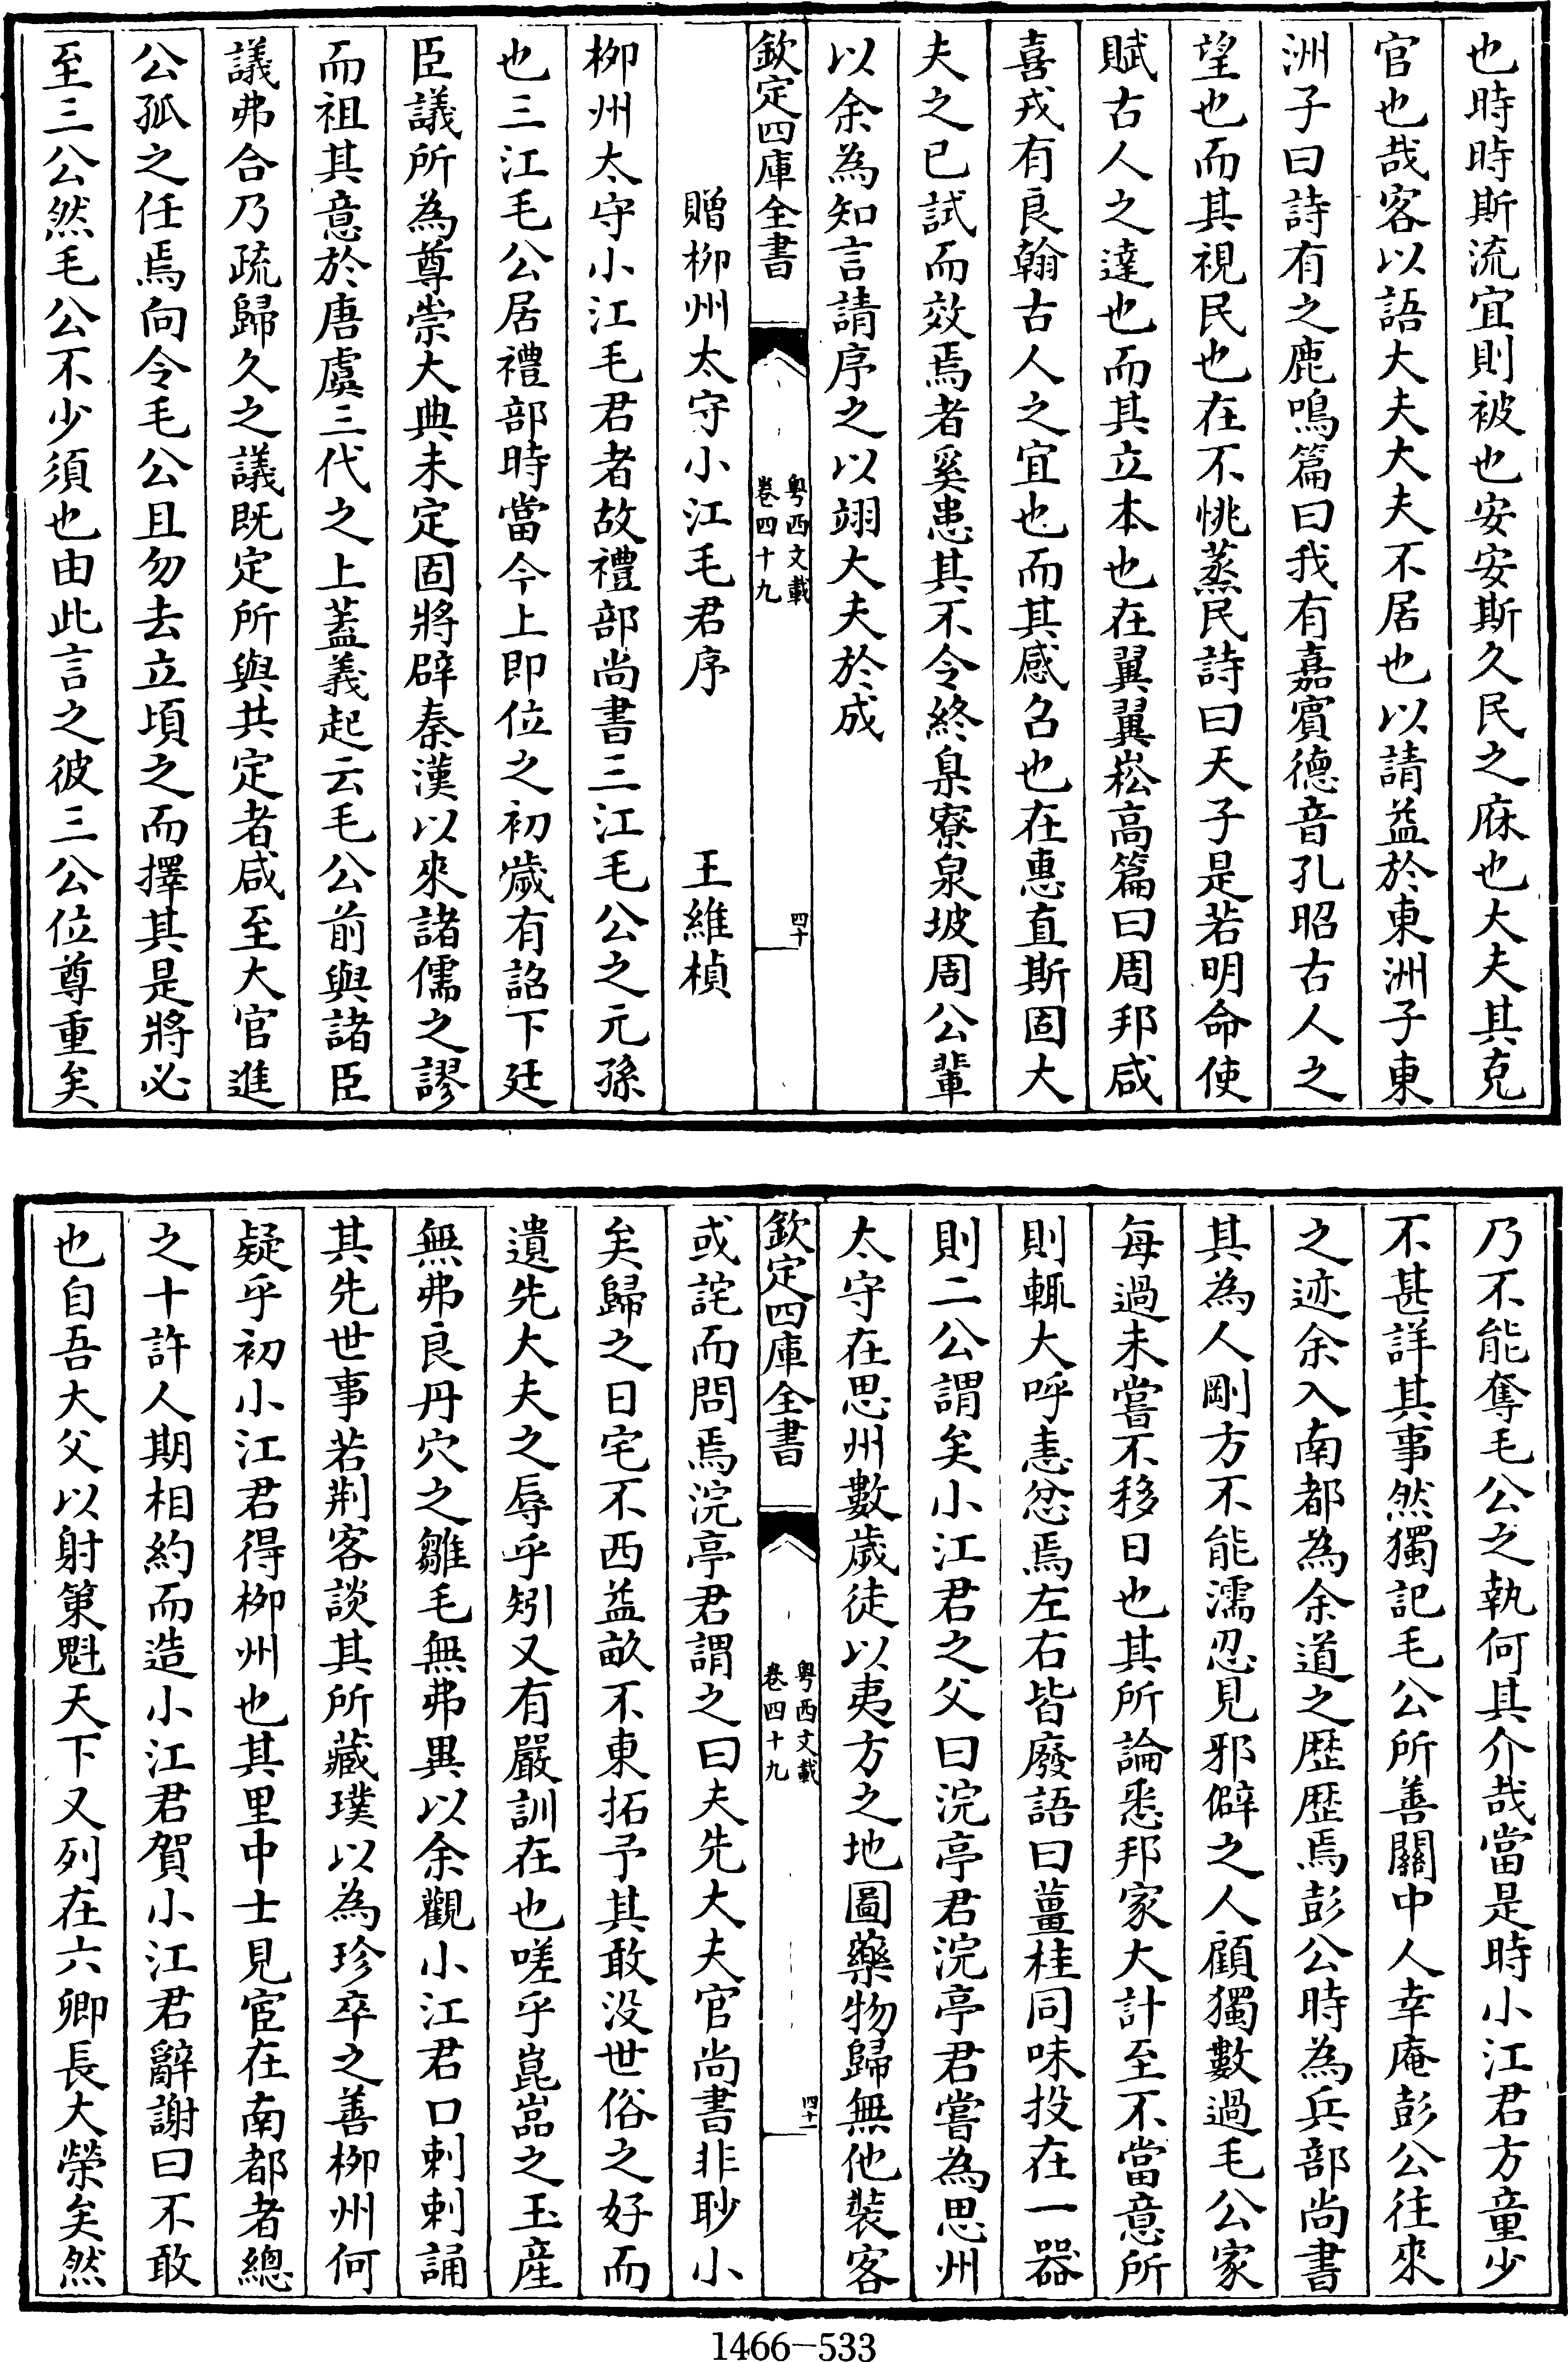 也時時斯流宜則被也安安斯久民之庥也大夫其克
官也哉客以語大夫大夫不居也以請益於東洲子東
洲子曰詩有之鹿鳴篇曰我有嘉賓德音孔昭古人之
望也而其視民也在不恌蒸民詩曰天子是若明命使
賦古人之達也而其立本也在翼翼崧高篇曰周邦咸
喜戎有良翰古人之宜也而其感召也在惠直斯固大
夫之已試而效焉者奚患其不令終臬寮泉坡周公輩
以余為知言請序之以翊大夫於成
欽定四庫全書
粤西文載
卷四十九
四十
贈柳州太守小江毛君序 王維楨
柳州太守小江毛君者故禮部尚書三江毛公之元孫
也三江毛公居禮部時當今上即位之初歲有詔下廷
臣議所為尊崇大典未定固將辟秦漢以來諸儒之謬
而祖其意於唐虞三代之上蓋義起云毛公前與諸臣
議弗合乃疏歸久之議既定所與共定者咸至大官進
公孤之任焉向令毛公且勿去立頃之而擇其是將必
至三公然毛公不少須也由此言之彼三公位尊重矣
乃不能奪毛公之執何其介哉當是時小江君方童少
不甚詳其事然獨記毛公所善關中人幸庵彭公往來
之迹余入南都為余道之歴歴焉彭公時為兵部尚書
其為人剛方不能濡忍見邪僻之人顧獨數過毛公家
每過未嘗不移日也其所論悉邦家大計至不當意所
則輒大呼恚忿焉左右皆廢語曰薑桂同味投在一器
則二公謂矣小江君之父曰浣亭君浣亭君嘗為思州
太守在思州數歲徒以夷方之地圖藥物歸無他裝客
欽定四庫全書
粤西文載
卷四十九
四十一
或詫而問焉浣亭君謂之曰夫先大夫官尚書非眇小
矣歸之日宅不西益畝不東拓予其敢沒世俗之好而
遺先大夫之辱乎矧又有嚴訓在也嗟乎崑嵓之玉産
無弗良丹穴之雛毛無弗異以余觀小江君口刺刺誦
其先世事若荆客談其所藏璞以為珍卒之善柳州何
疑乎初小江君得柳州也其里中士見宦在南都者總
之十許人期相約而造小江君賀小江君辭謝曰不敢
也自吾大父以射策魁天下又列在六卿長大榮矣然
1466-533